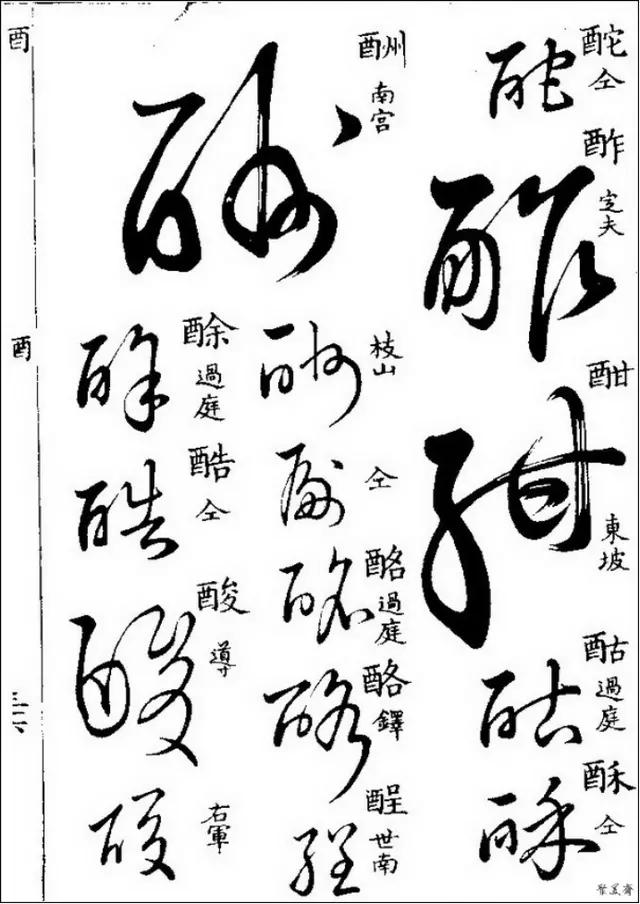 酡 仝
酢 定夫
酣 東坡
酤 過庭
酥 仝
酬 南宮
枝山
仝
酩 過庭
酪 鐸
酲 世南
酴 過庭
酷 仝
酸 導
右軍
酉
酉
三一六